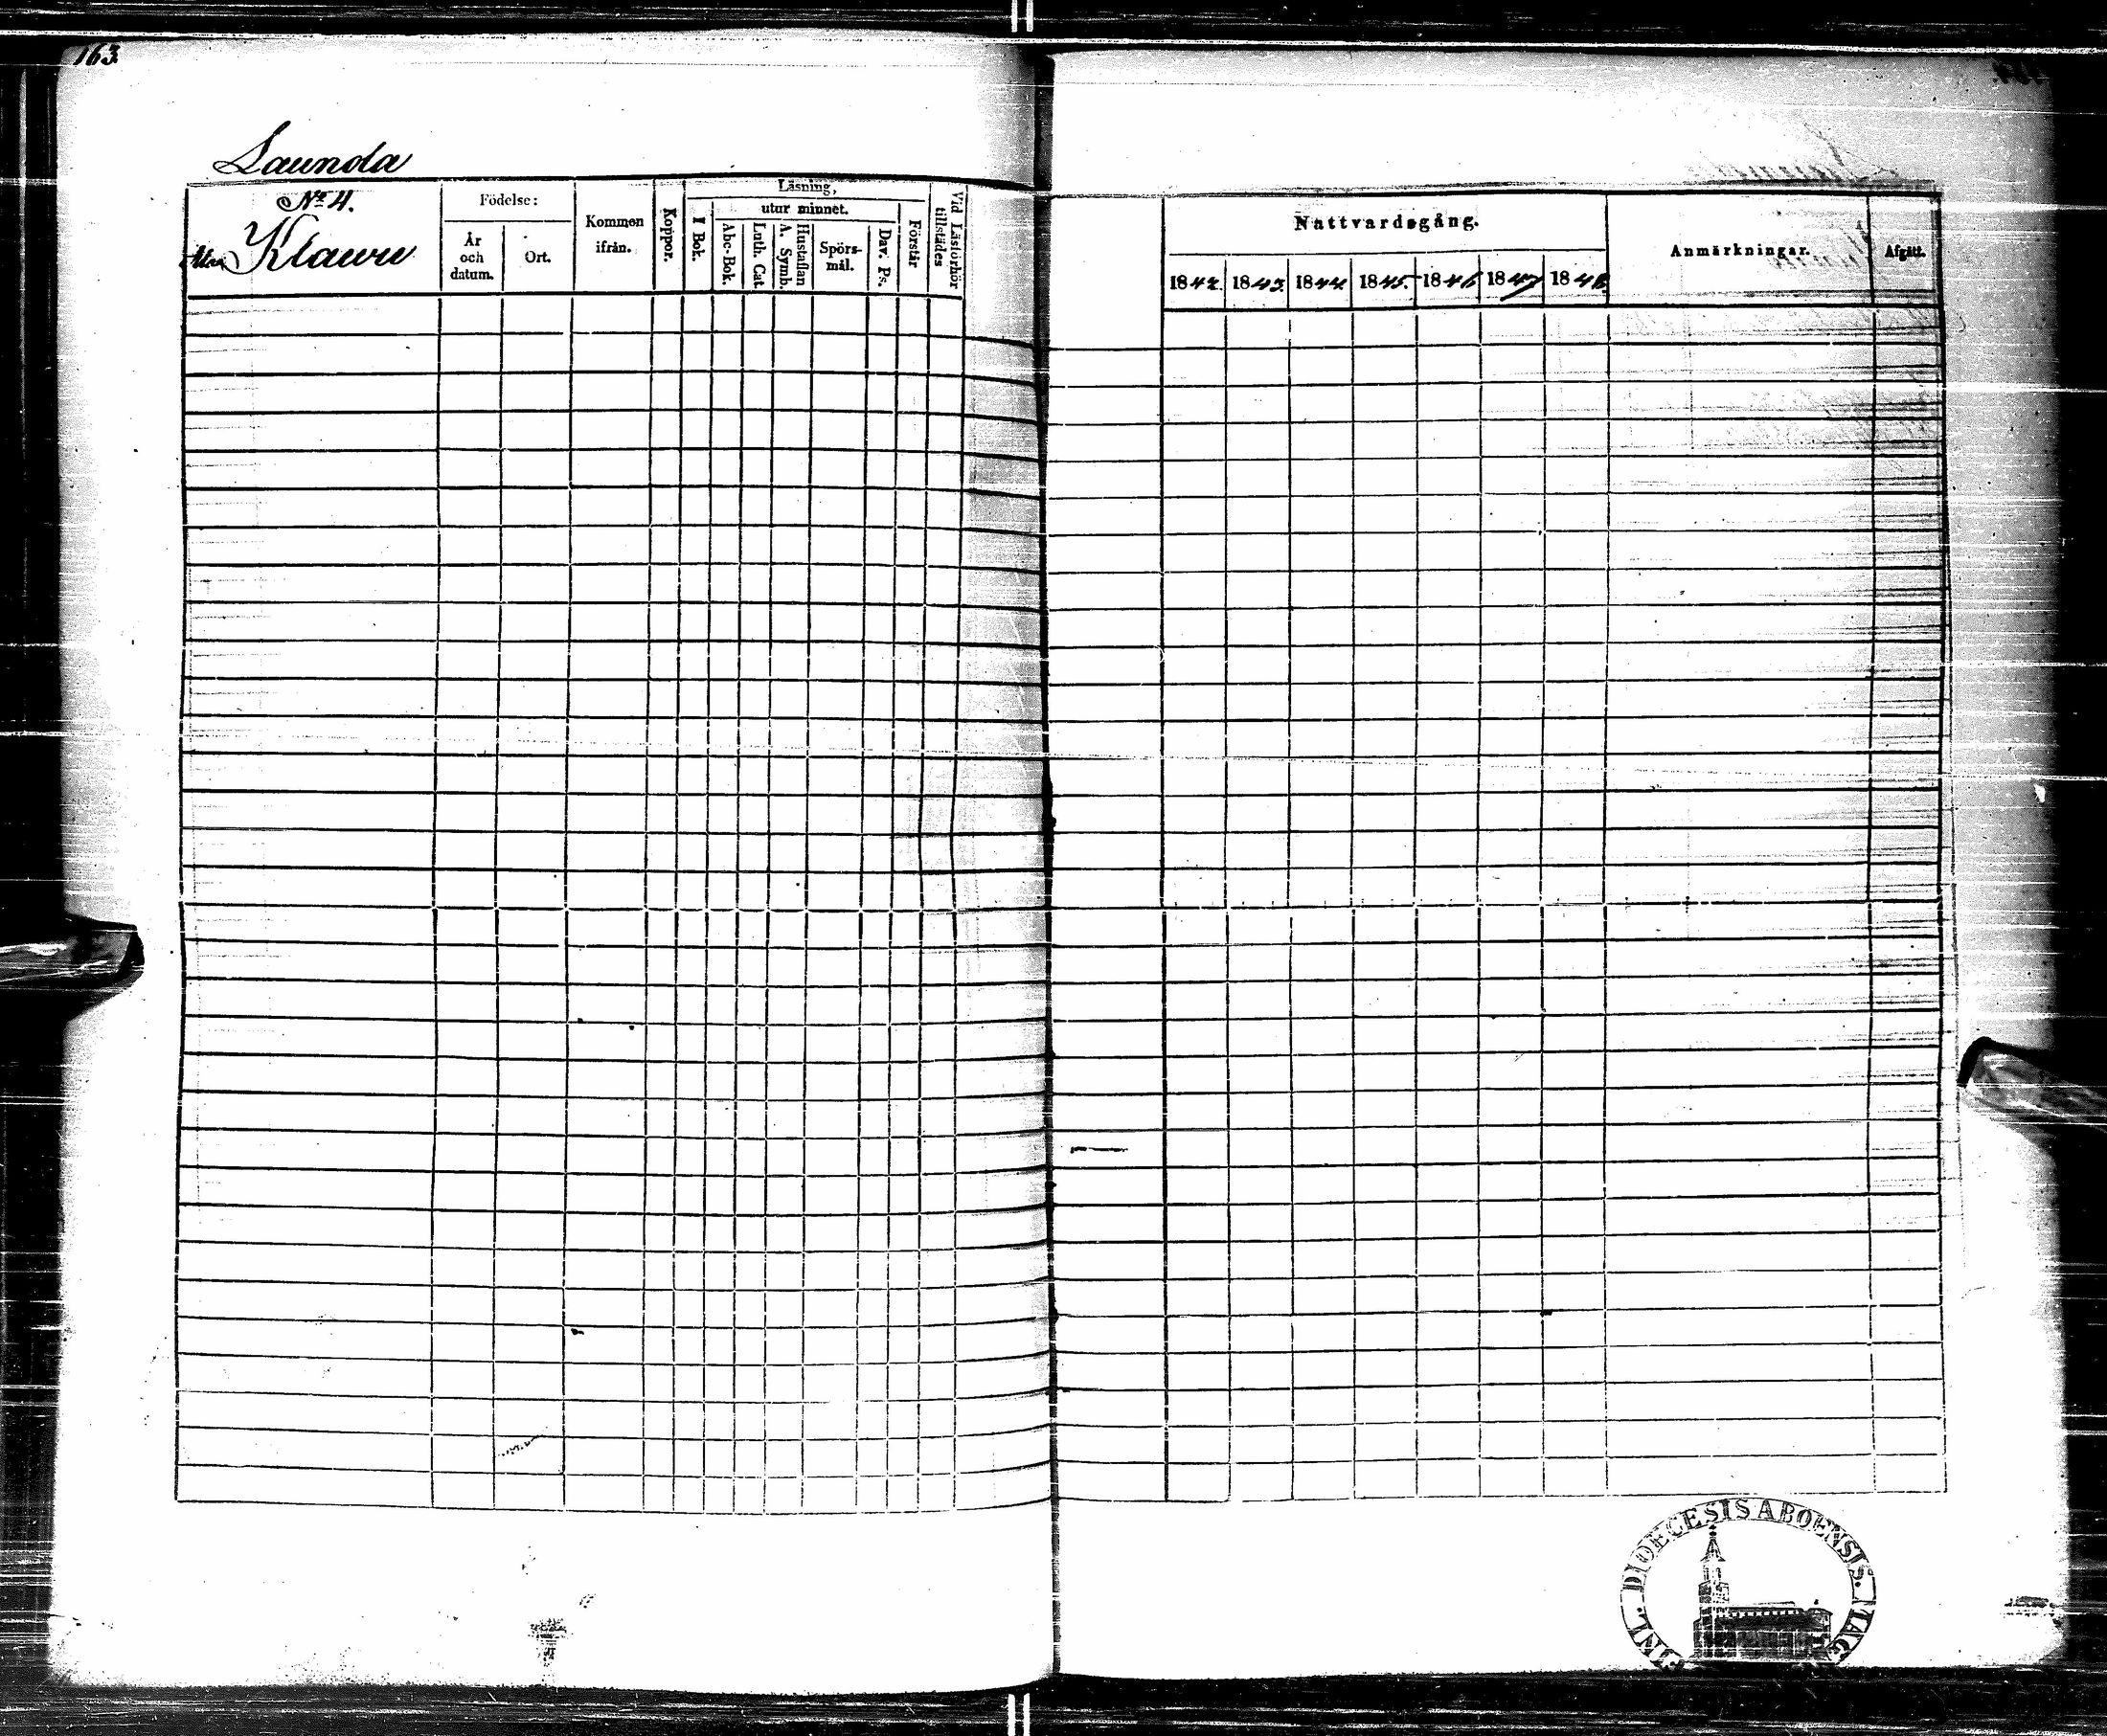 163.
Launola
No 4.
Klawu
Födelse:
År
och
datum.
Ort.
Kommen
ifrån.
Koppor.
Läsning,
I Bok.
utur minnet.
Abc-Bok.
Luth. Cat.
Hustaflan
A. Symb.
Spörs-
mål.
Dav. Ps.
Förstår
Vid Läsförhör
tillstädes
Nattvardsgång.
1842. 1843. 1844. 1845. 1846 1847 1848.
Anmärkningar.
Afgått.
DIOECESIS ABOENSIS. MAG